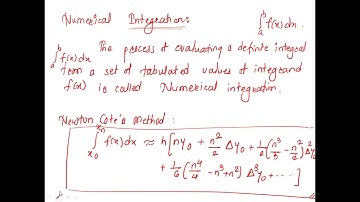 Numerical Integration: ∫_a^b f(x)dx.
∫_a^b f(x)dx The process of evaluating a definite integral
from a set of tabulated values of integrand
f(x) is called Numerical integration.
Newton Cote's Method:
∫_{x_0}^{x_n} f(x)dx ≈ h[ny_0 + n²/2 Δy_0 + 1/2(n³/3 - n²/2)Δ²y_0
+ 1/6(n⁴/4 - n³+n²) Δ³y_0 + ---- ]